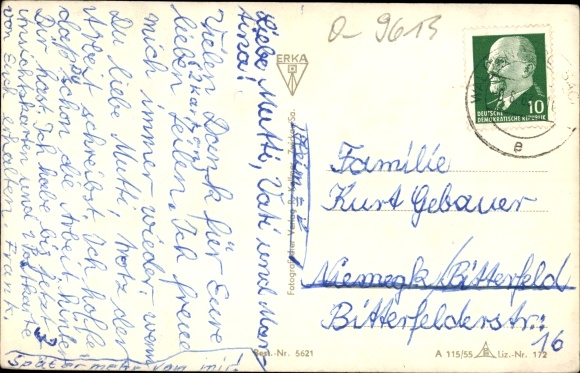 Liebe Mutti, Vati und Mar-
tina!
Vielen Dank für Eure
lieben Zeilen. Ich freue
mich immer wieder wenn
Du liebe Mutti, trotz der
Arbeit schreibst. Ich hoffe
daß Du schon die Arbeit hinter
Dir hast. Ich habe bis jetzt
und 1 Postkarte
von Euch erhalten. Frank.
Später mehr von mir!
0-9613
ERKA
10
DEUTSCHE
DEMOKRATISCHE REPUBLIK
e
Familie
Kurt Gebauer
Niemegk/Bitterfeld
Bitterfelderstr.:
16
Fotografischer Verlag R. Sa.
Best.-Nr. 5621
A 115/55 Liz.-Nr. 172